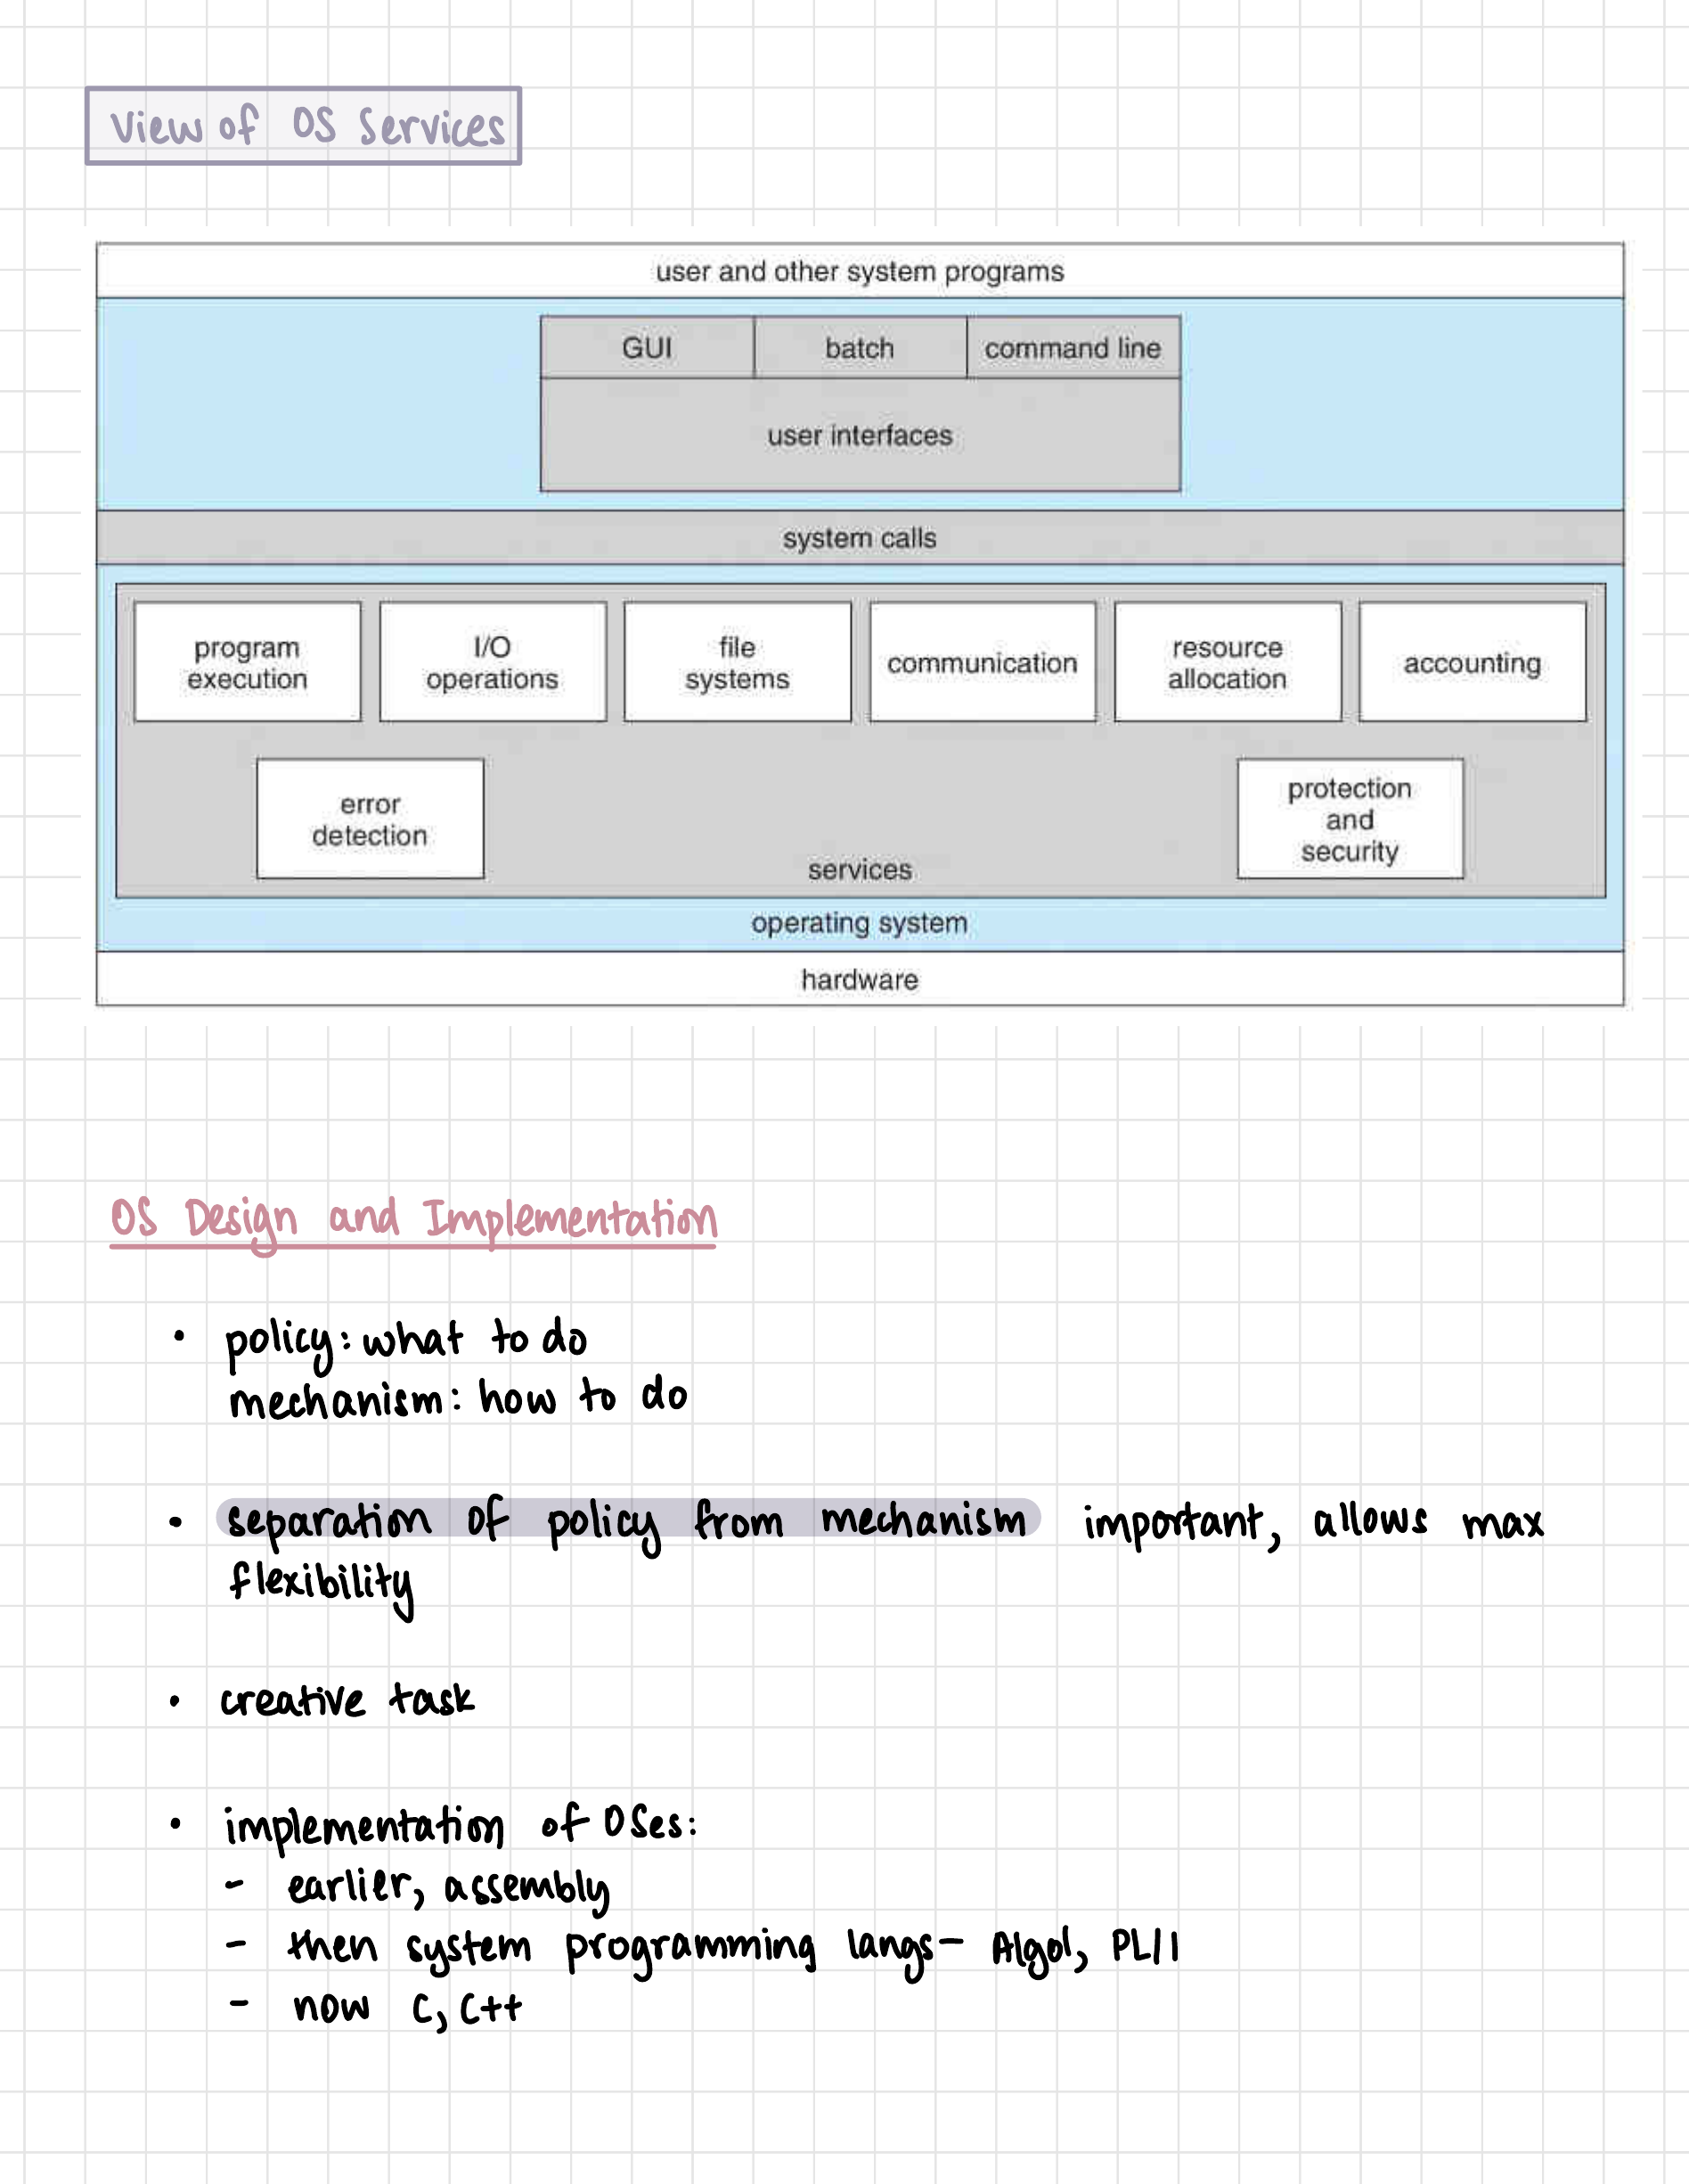 View of OS Services
user and other system programs
GUI batch command line
user interfaces
system calls
program execution
I/O operations
file systems
communication
resource allocation
accounting
error detection
protection and security
services
operating system
hardware
OS Design and Implementation
• policy: what to do
mechanism: how to do
• separation of policy from mechanism important, allows max
flexibility
• creative task
• implementation of OSes:
- earlier, assembly
- then system programming langs- Algol, PL/1
- now C, C++